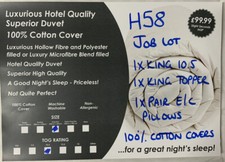 Luxurious Hotel Quality
Superior Duvet
100% Cotton Cover
Luxurious Hollow Fibre and Polyester
filled or Luxury Microfibre Blend filled
Hotel Quality Duvet
Superior High Quality
A Good Night's Sleep - Priceless!
Not Quite Perfect
100% Cotton Cover
Machine Washable
Non-Allergenic
SIZE
TOG RATING
£99.99
H58
JOB LOT
1x KING 10.5
1x KING TOPPER
1x PAIR E/C
PILLOWS
100% COTTON COVERS
...for a great night's sleep!